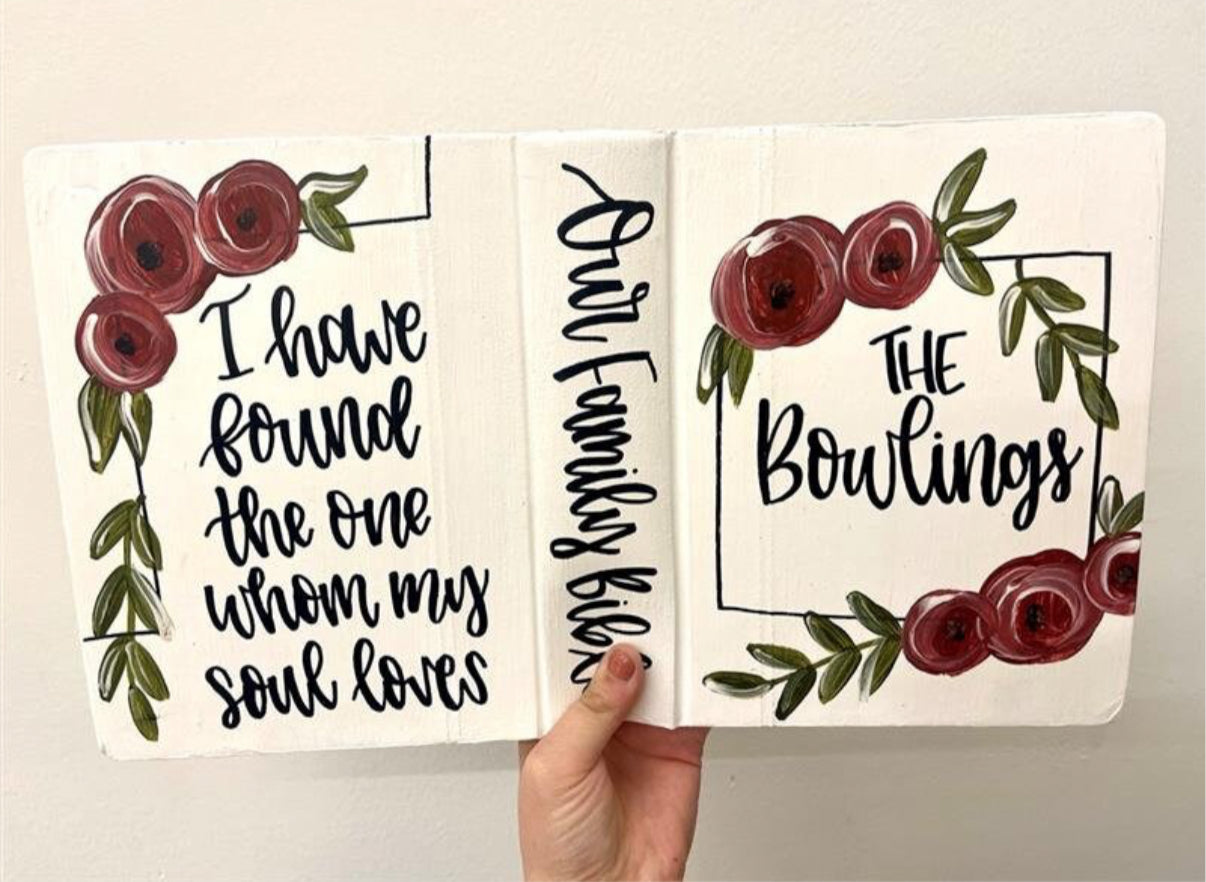 I have
found
the one
whom my
soul loves
Our Family Bible
THE
Bowlings